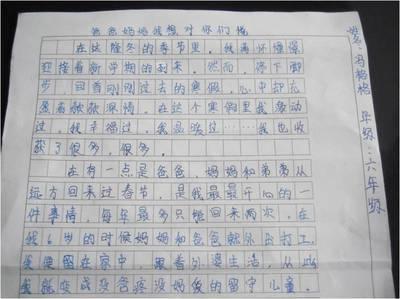 爸爸妈妈我想对你们说
在这隆冬的季节里,我满怀憧憬
迎接着新学期的到来。然而,停下脚
步,回首刚刚过去的寒假,心中却充
满着酸酸深情。在这个寒假里我感动
过,我幸福过,我品味过……我也收
获了很多,很多。
在有一点是爸爸,妈妈和弟弟从
远方回来过春节,是我最最开心的一
件事情,每年最多只能回来两次,在
我6岁的时候妈妈和爸爸就外出打工。
我便留在家中,跟着外婆生活,从此
我就变成没爸疼没妈的留守儿童。
姓名:冯格格 年级:六年级